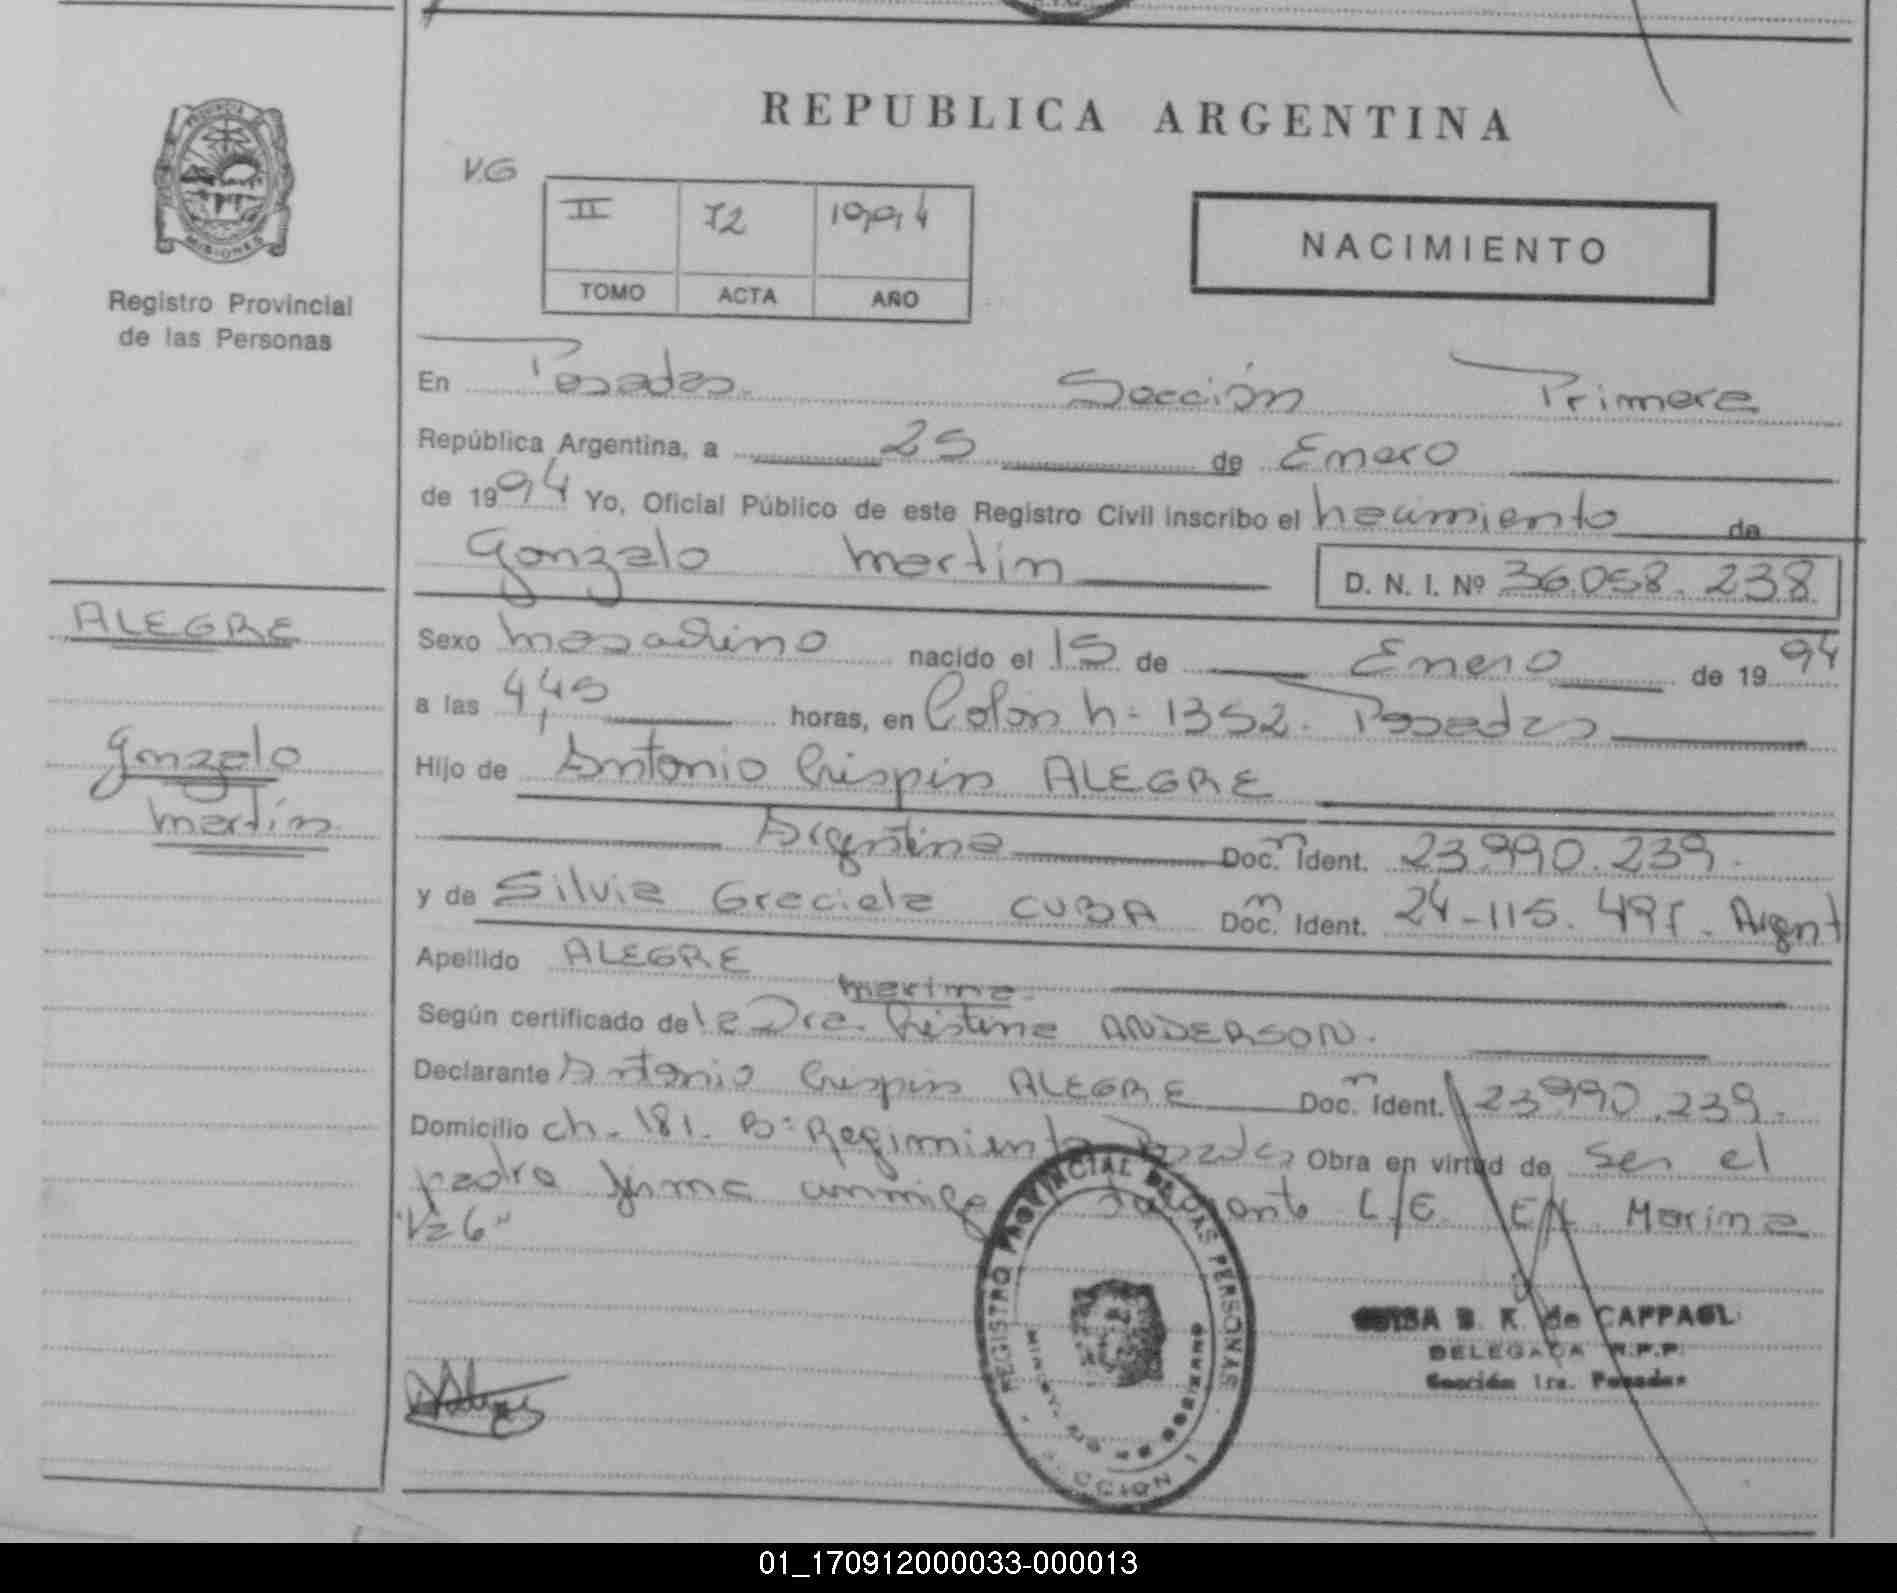 REPUBLICA ARGENTINA
V.G
II 72 1994
TOMO ACTA AÑO
NACIMIENTO
PROVINCIA
MISIONES
Registro Provincial
de las Personas
ALEGRE
Gonzalo
Martín
En Posadas. Sección Primera
República Argentina, a 25 de Enero
de 1994 Yo, Oficial Público de este Registro Civil inscribo el nacimiento de
Gonzalo Martín D. N. I. Nº 36.058.238
Sexo masculino nacido el 15 de Enero de 1994
a las 4,45 horas, en Colón n: 1352. Posadas
Hijo de Antonio Crispin ALEGRE
Argentino Doc. n Ident. 23.990.239.
y de Silvia Graciela CUBA Doc. n Ident. 24-115.491. Argent
Apellido ALEGRE
Marina
Según certificado de la Dra. Cristina ANDERSON.
Declarante Antonio Crispin ALEGRE Doc. n Ident. 23.990.239.
Domicilio ch. 181. Bº Regimiento Posadas Obra en virtud de ser el
padre firma conmigo L/E. E/L. Marina
"Vale"
REGISTRO PROVINCIAL DE LAS PERSONAS
SECCION 1
B. K. de CAPPAGLI
DELEGADA R.P.P.
Sección 1ra. Posadas
01_170912000033-000013